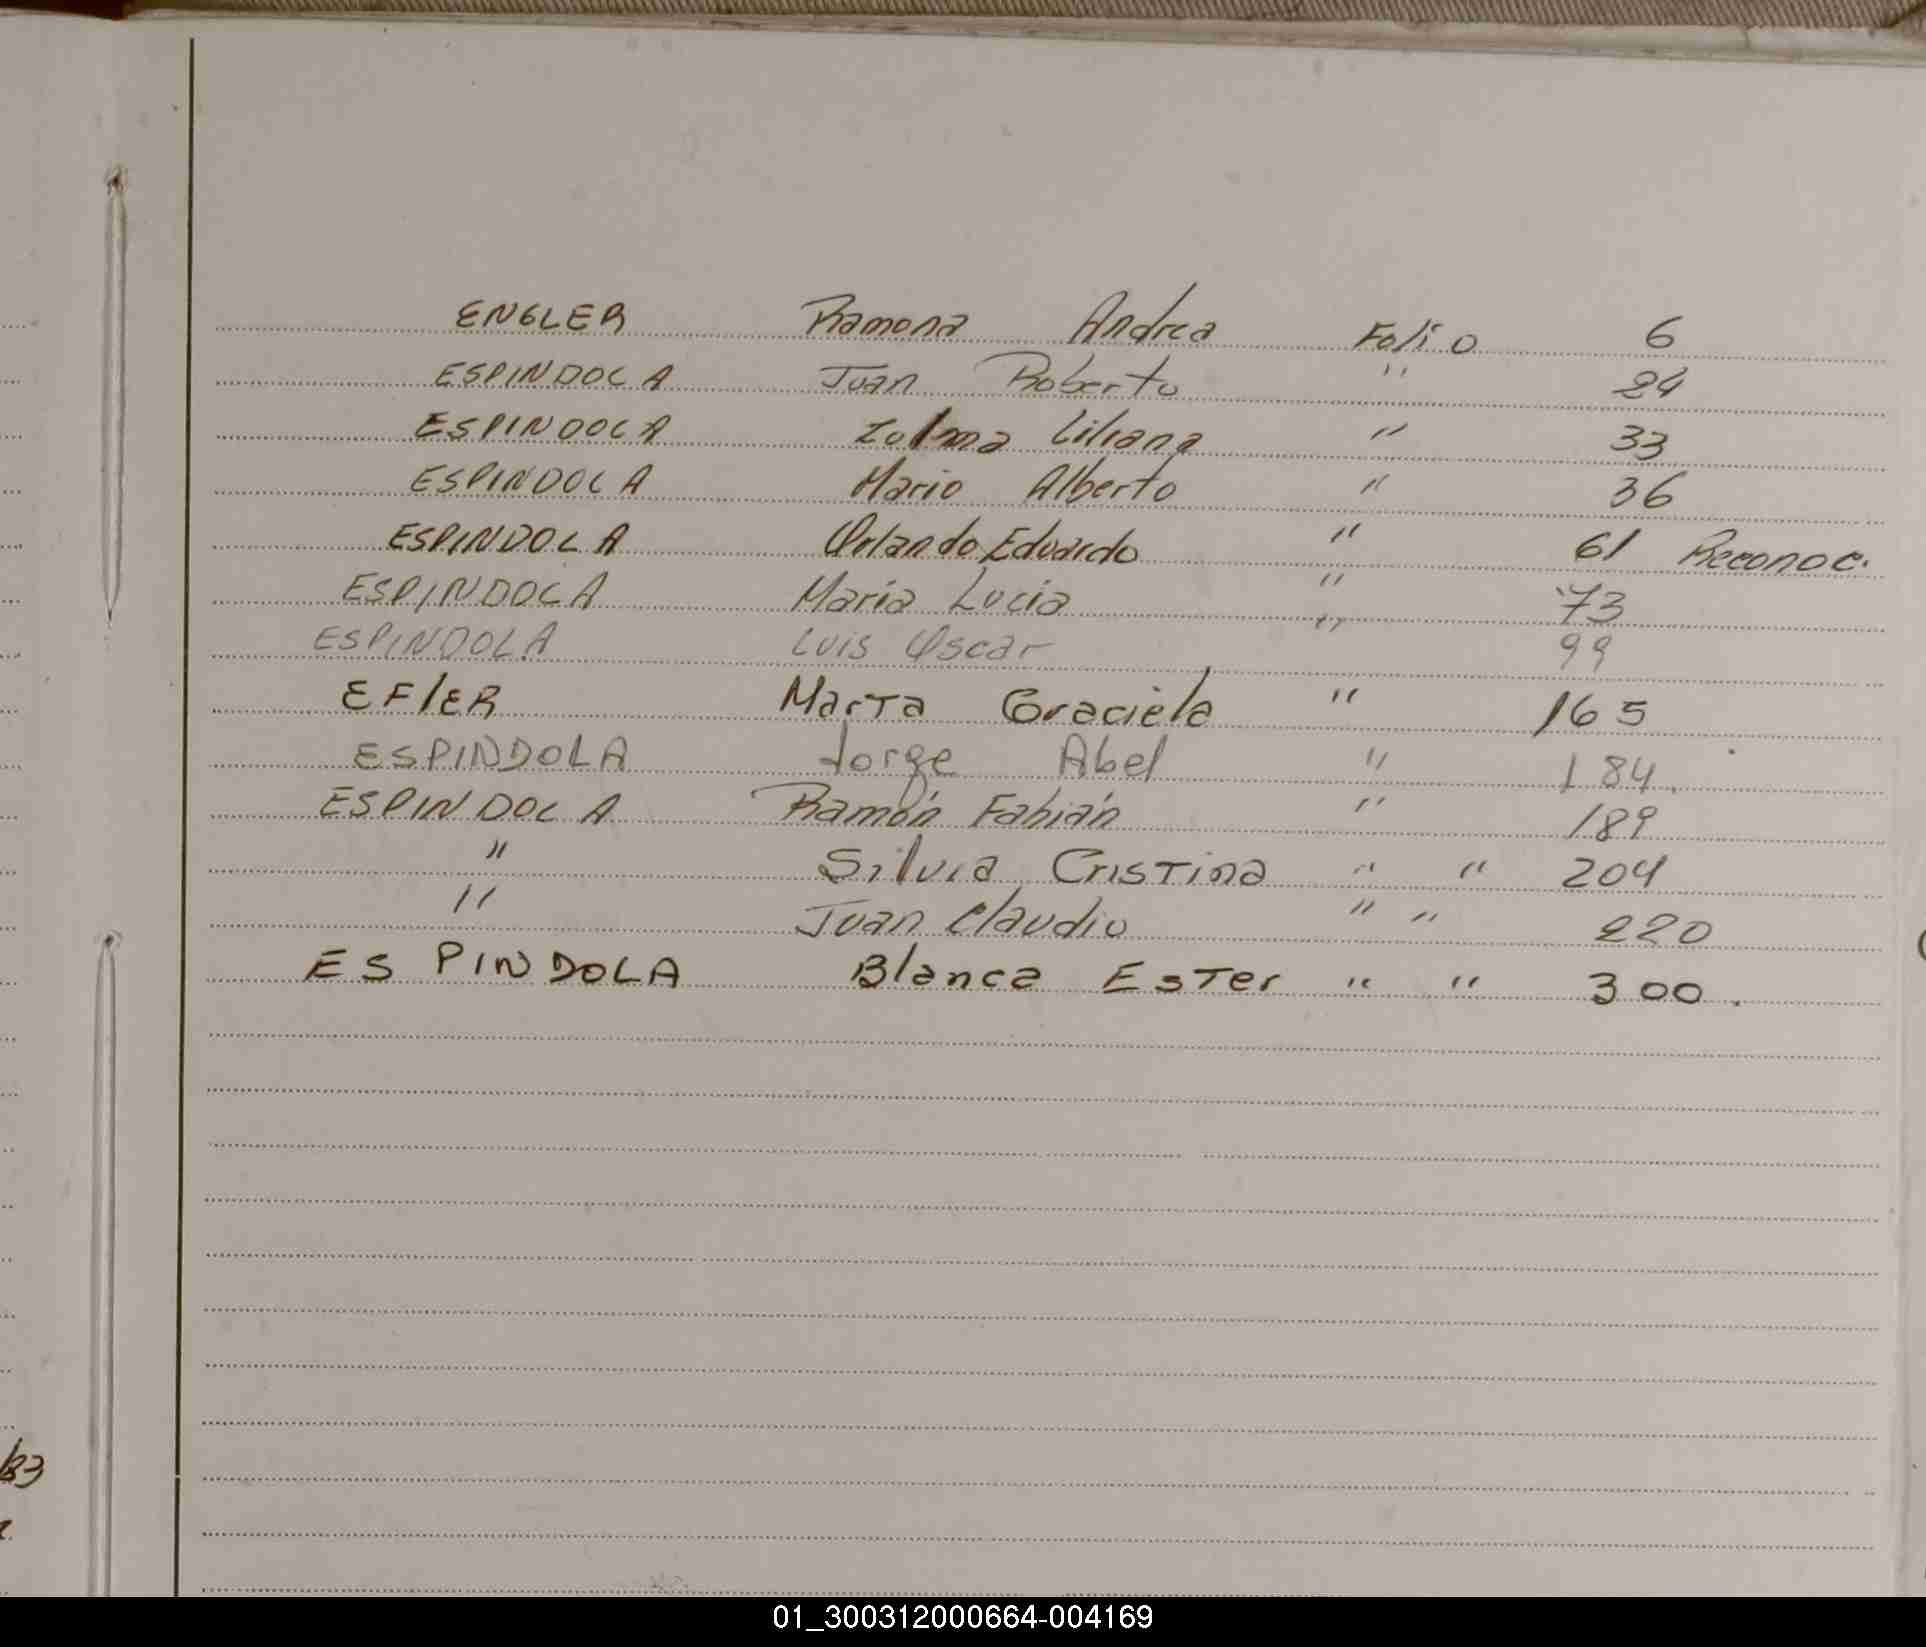 ENGLER Ramona Andrea Folio 6
ESPINDOLA Juan Roberto " 24
ESPINDOLA Zulma Liliana " 33
ESPINDOLA Mario Alberto " 36
ESPINDOLA Orlando Eduardo " 61 Reconoc.
ESPINDOLA Maria Lucia " 73
ESPINDOLA Luis Oscar " 99
EFlER Marta Graciela " 165
ESPINDOLA Jorge Abel " 184.
ESPINDOLA Ramón Fabián " 189
" Silvia Cristina " " 204
" Juan Claudio " " 220
ESPINDOLA Blanca Ester " " 300.
/83
01_300312000664-004169